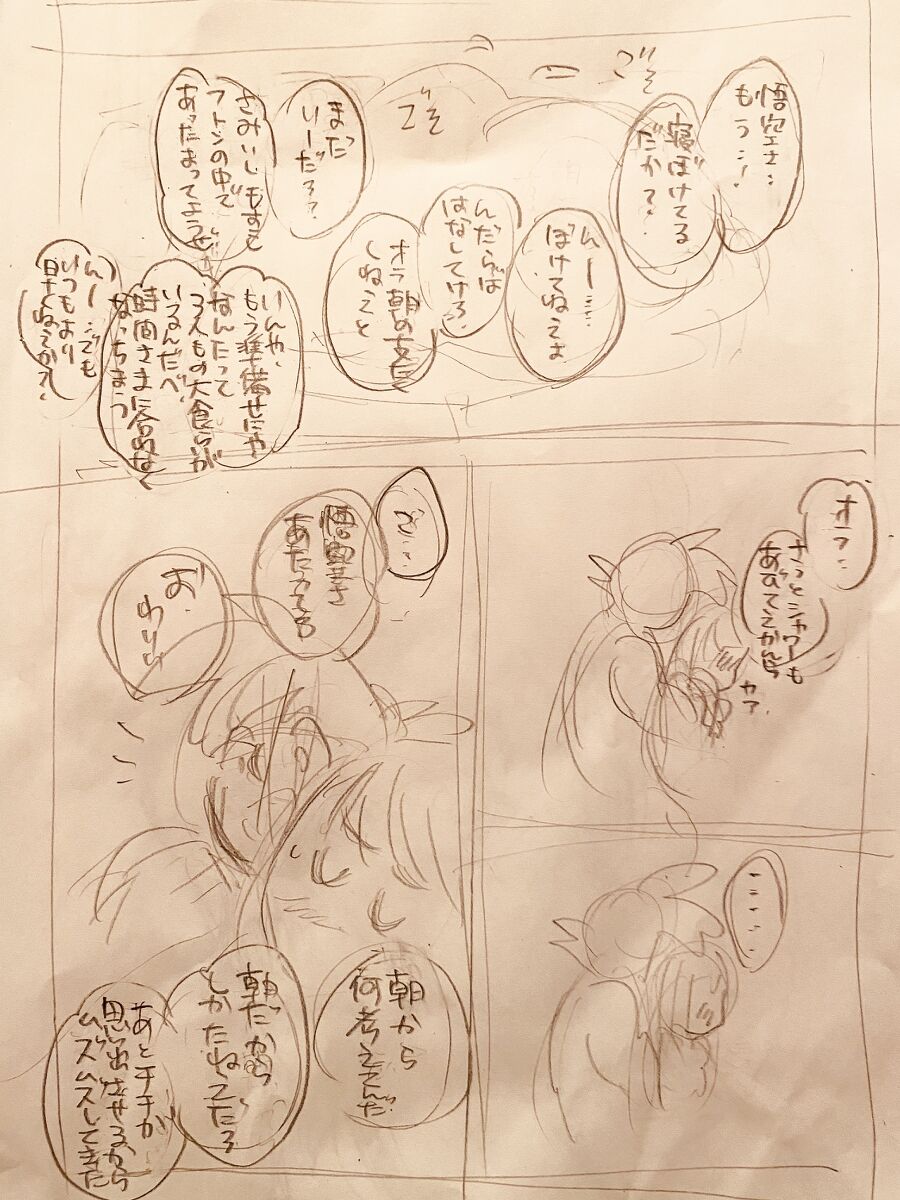 悟空さ‥
もう‥!
ごそ
寝ぼけてる
だか?
んー‥
ぼけてねえよ
んだらば
はなしてけろ
オラ朝の支度
しねえと
ごそ
まだ
いーだろ?
さみいしもすこし
フトンの中で
あったまってようぜ
いんや、
もう準備せにゃ
なんたって
3人もの大食らいが
いるんだべ、
時間さまに合わなく
なっちまう
んー‥でも
いつもより
早くねえか?
オラ‥
さっとシャワーも
あびてえかんら
カァ
‥‥
ご‥
悟空さ
あたってる
お‥
わりい
朝から
何考えてんだ
朝だから
しかたねえだろ
あとチチが
思い出させるから
ムズムズしてきた